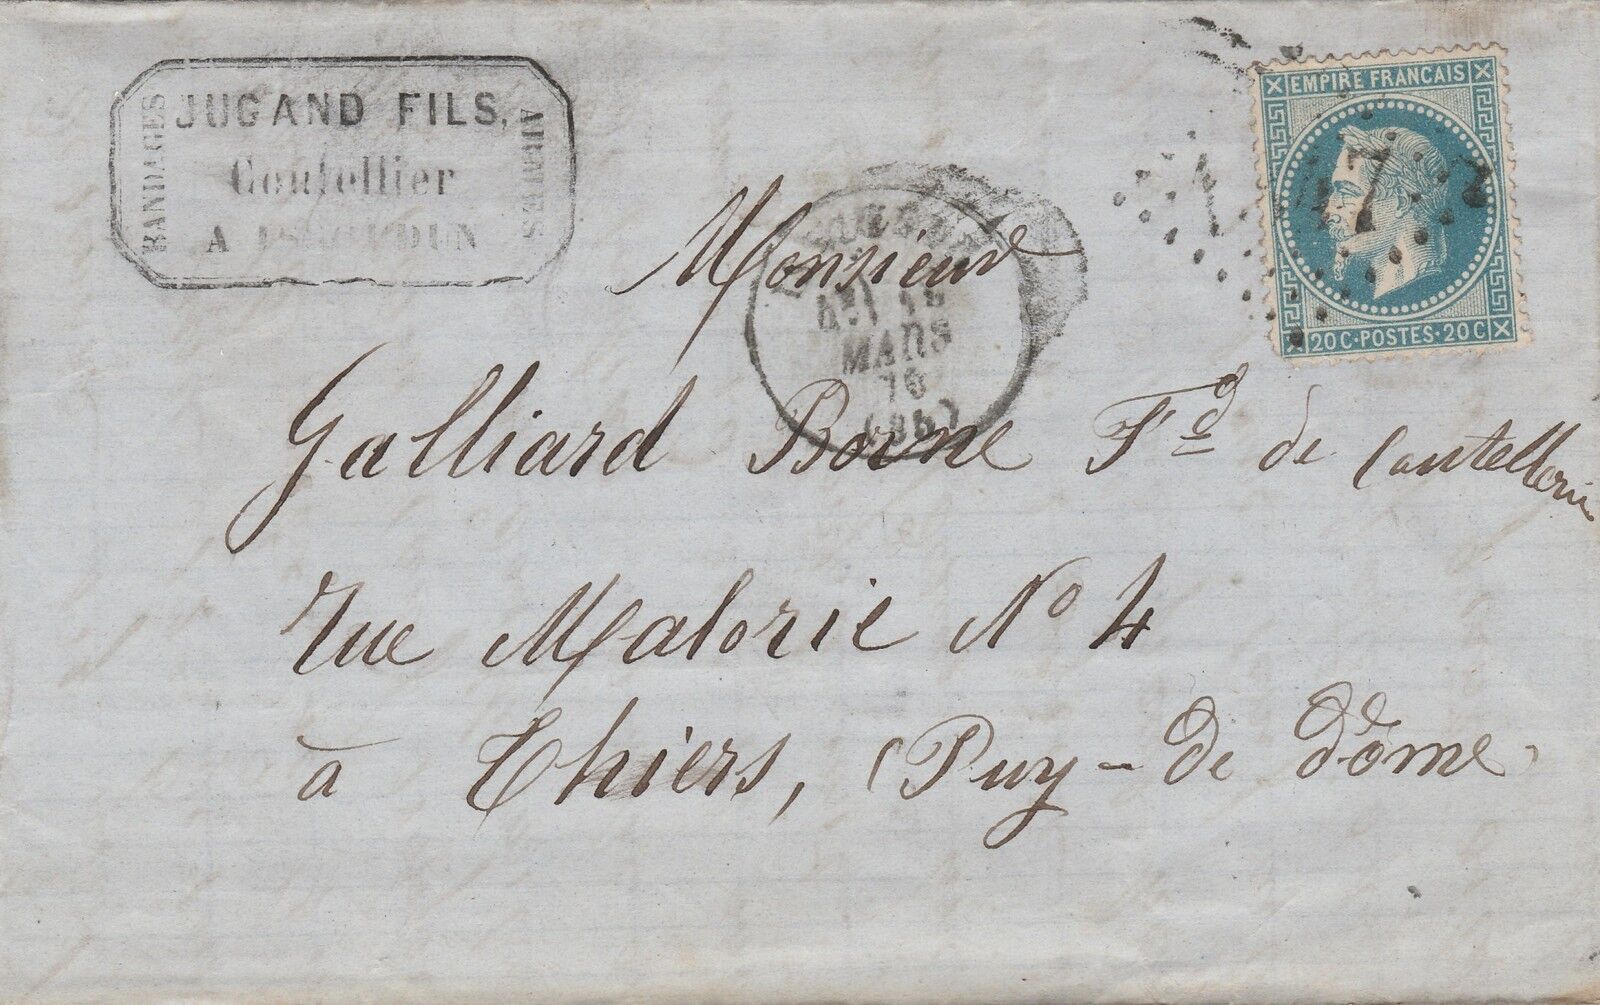 JUGAND FILS,
BANDAGES
Coutellier
A ISSOUDUN
EMPIRE FRANCAIS
20C·POSTES·20C
MARS
70
Monsieur
Galliard Borne Fd de Coutellerie
rue Malorie No 4
à Thiers, (Puy-de dôme